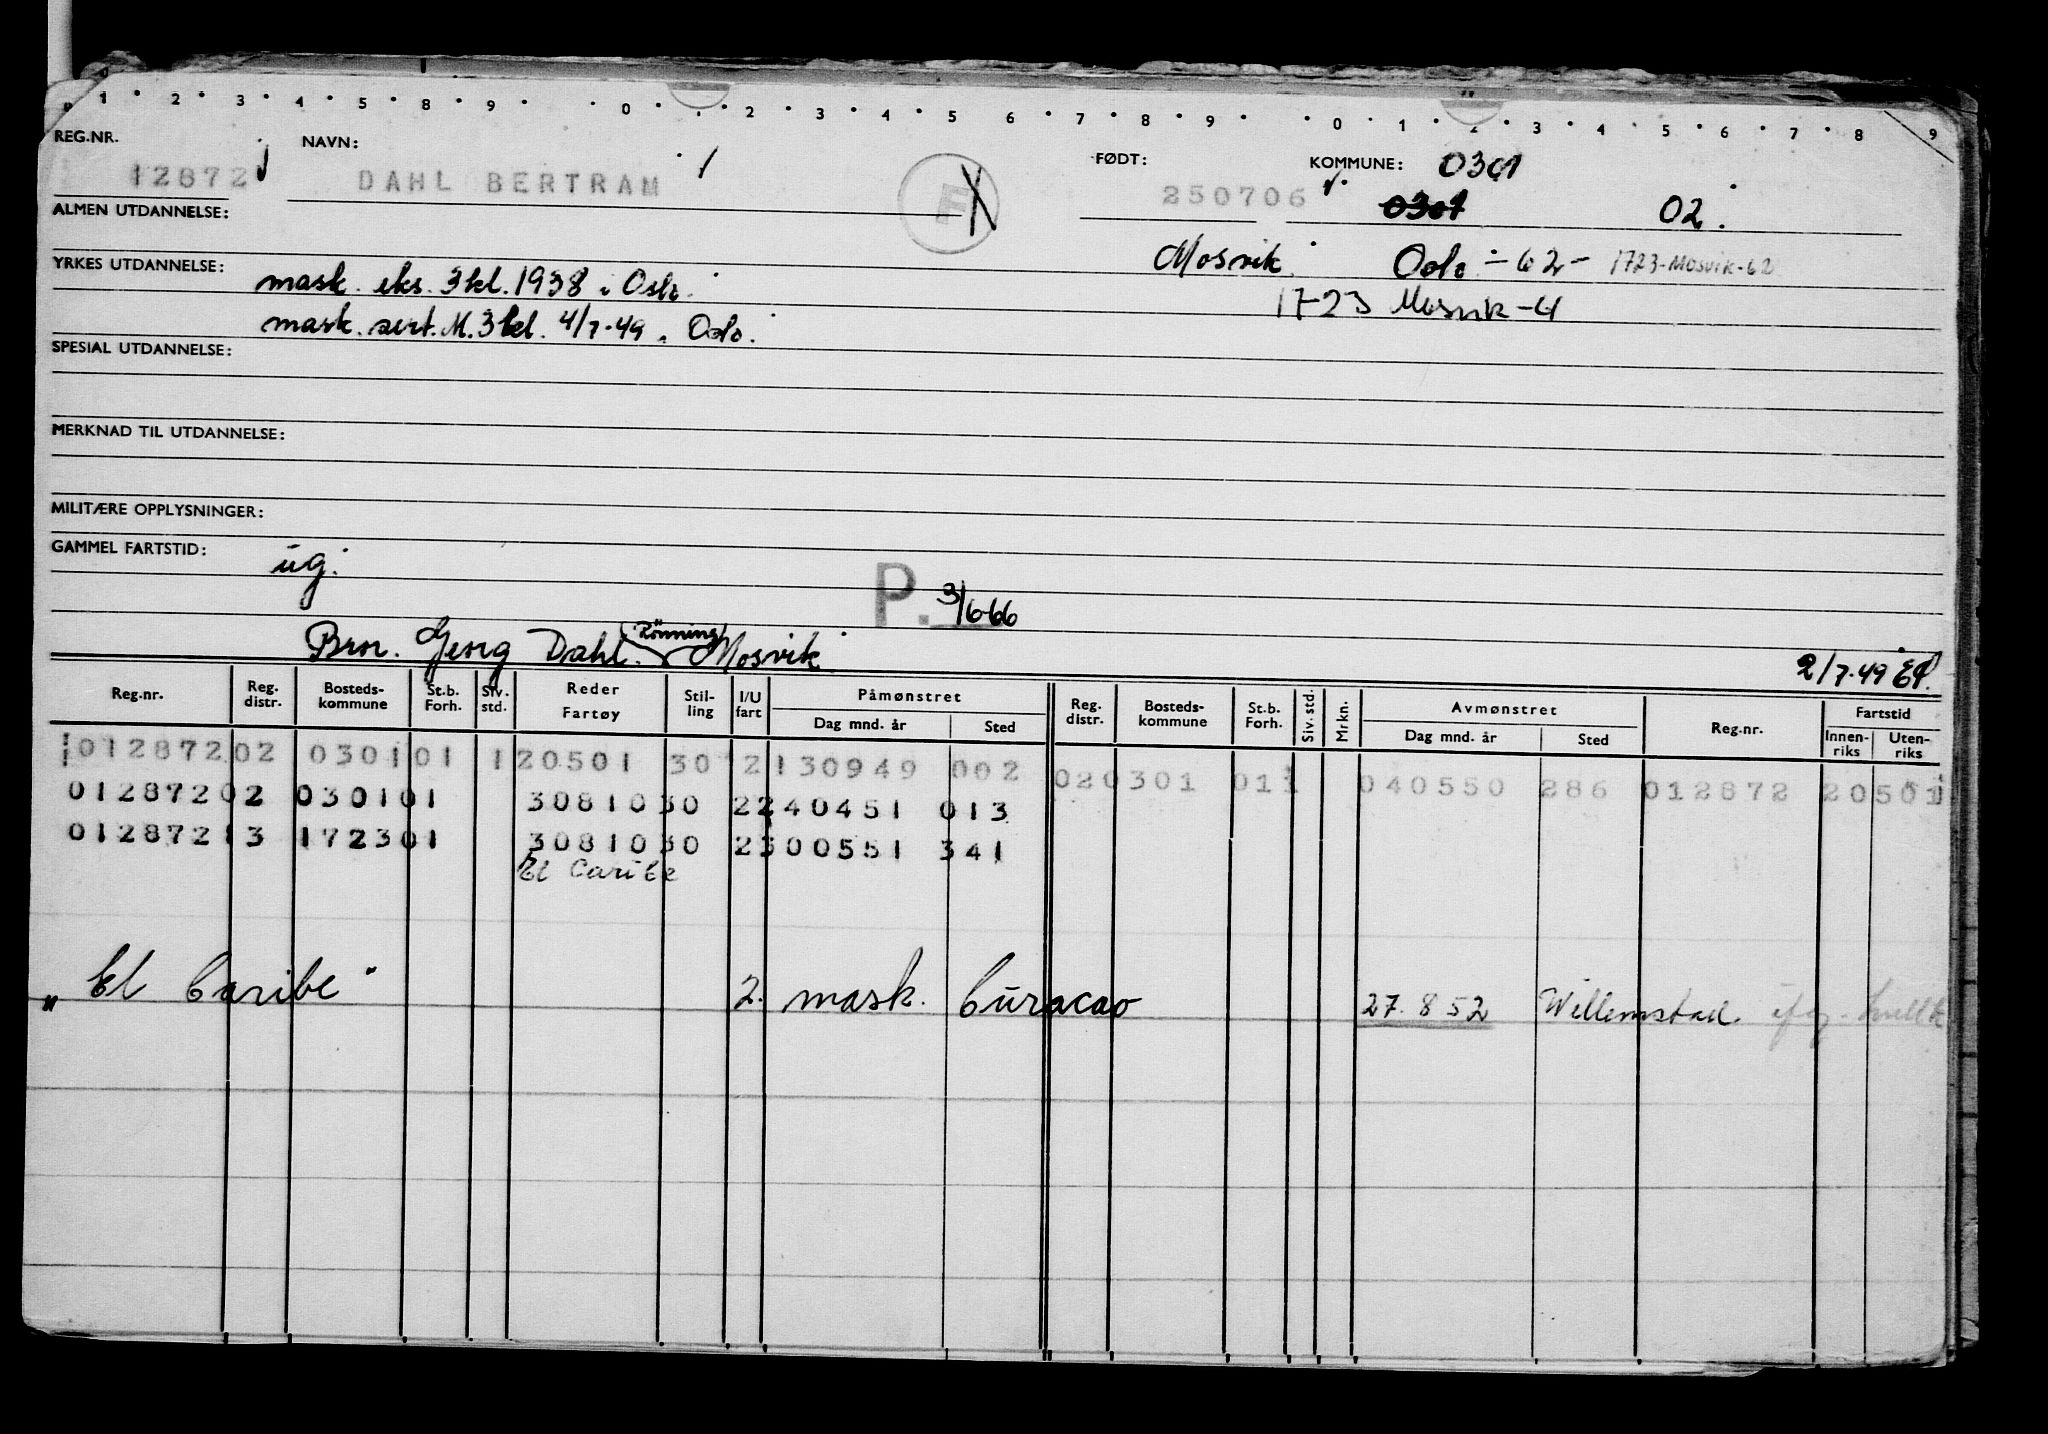 1 2 3 4 5 8 9 0 2 3 4 5 6 7 8 9 0 1 2 3 4 5 6 7 8 9
REG.NR. NAVN: FØDT: KOMMUNE: 0301
12872 DAHL BERTRAM 250706 0301 02.
ALMEN UTDANNELSE:
Mosvik Oslo - 62 - 1723-Mosvik-62
YRKES UTDANNELSE: mask. eks. 3kl. 1938 i Oslo.
1723 Mosvik-4
mask. sert. M. 3kl. 4/7-49. Oslo.
SPESIAL UTDANNELSE:
MERKNAD TIL UTDANNELSE:
MILITÆRE OPPLYSNINGER:
GAMMEL FARTSTID: ug.
P. 3/6-66
Bror. Georg Dahl. (Rönning) Mosvik
2/7-49 EP.
Reg.nr. Reg. distr. Bosteds-kommune St.b. Forh. Siv. std. Reder Fartøy Stil-ling I/U fart Påmønstret Dag mnd. år Sted Reg. distr. Bosteds-kommune St.b. Forh. Siv. std. Mrkn. Avmønstret Dag mnd. år Sted Reg.nr. Fartstid Innen-riks Uten-riks
01287202 030101 120501 30 2130949 002 020301 011 040550 286 012872 20501
01287202 030101 3081030 2240451 013
01287213 172301 3081030 2300551 341
El Caribe
"El Caribe" 2. mask. Curacao 27.8 52 Willemstad